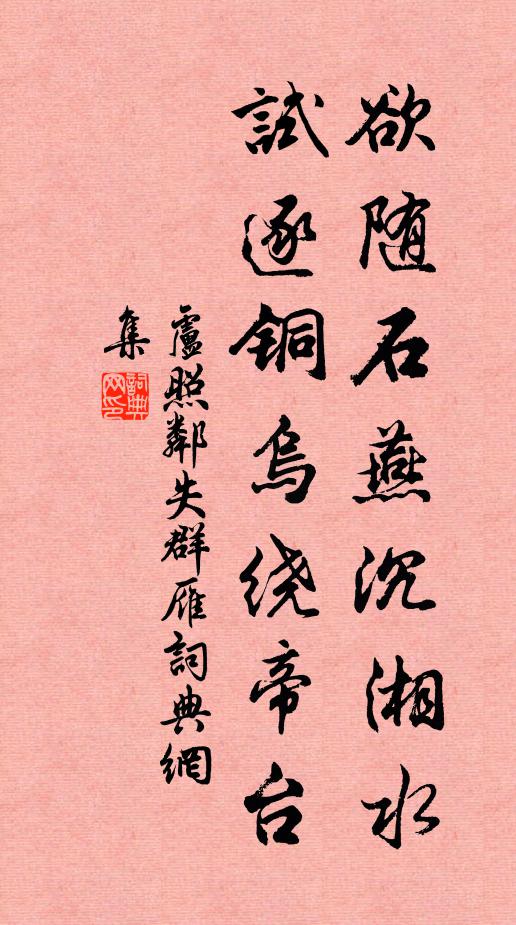 欲随石燕沉湘水
試逐铜乌绕帝台
盧照鄰失群雁詞典網
集
詞典网印